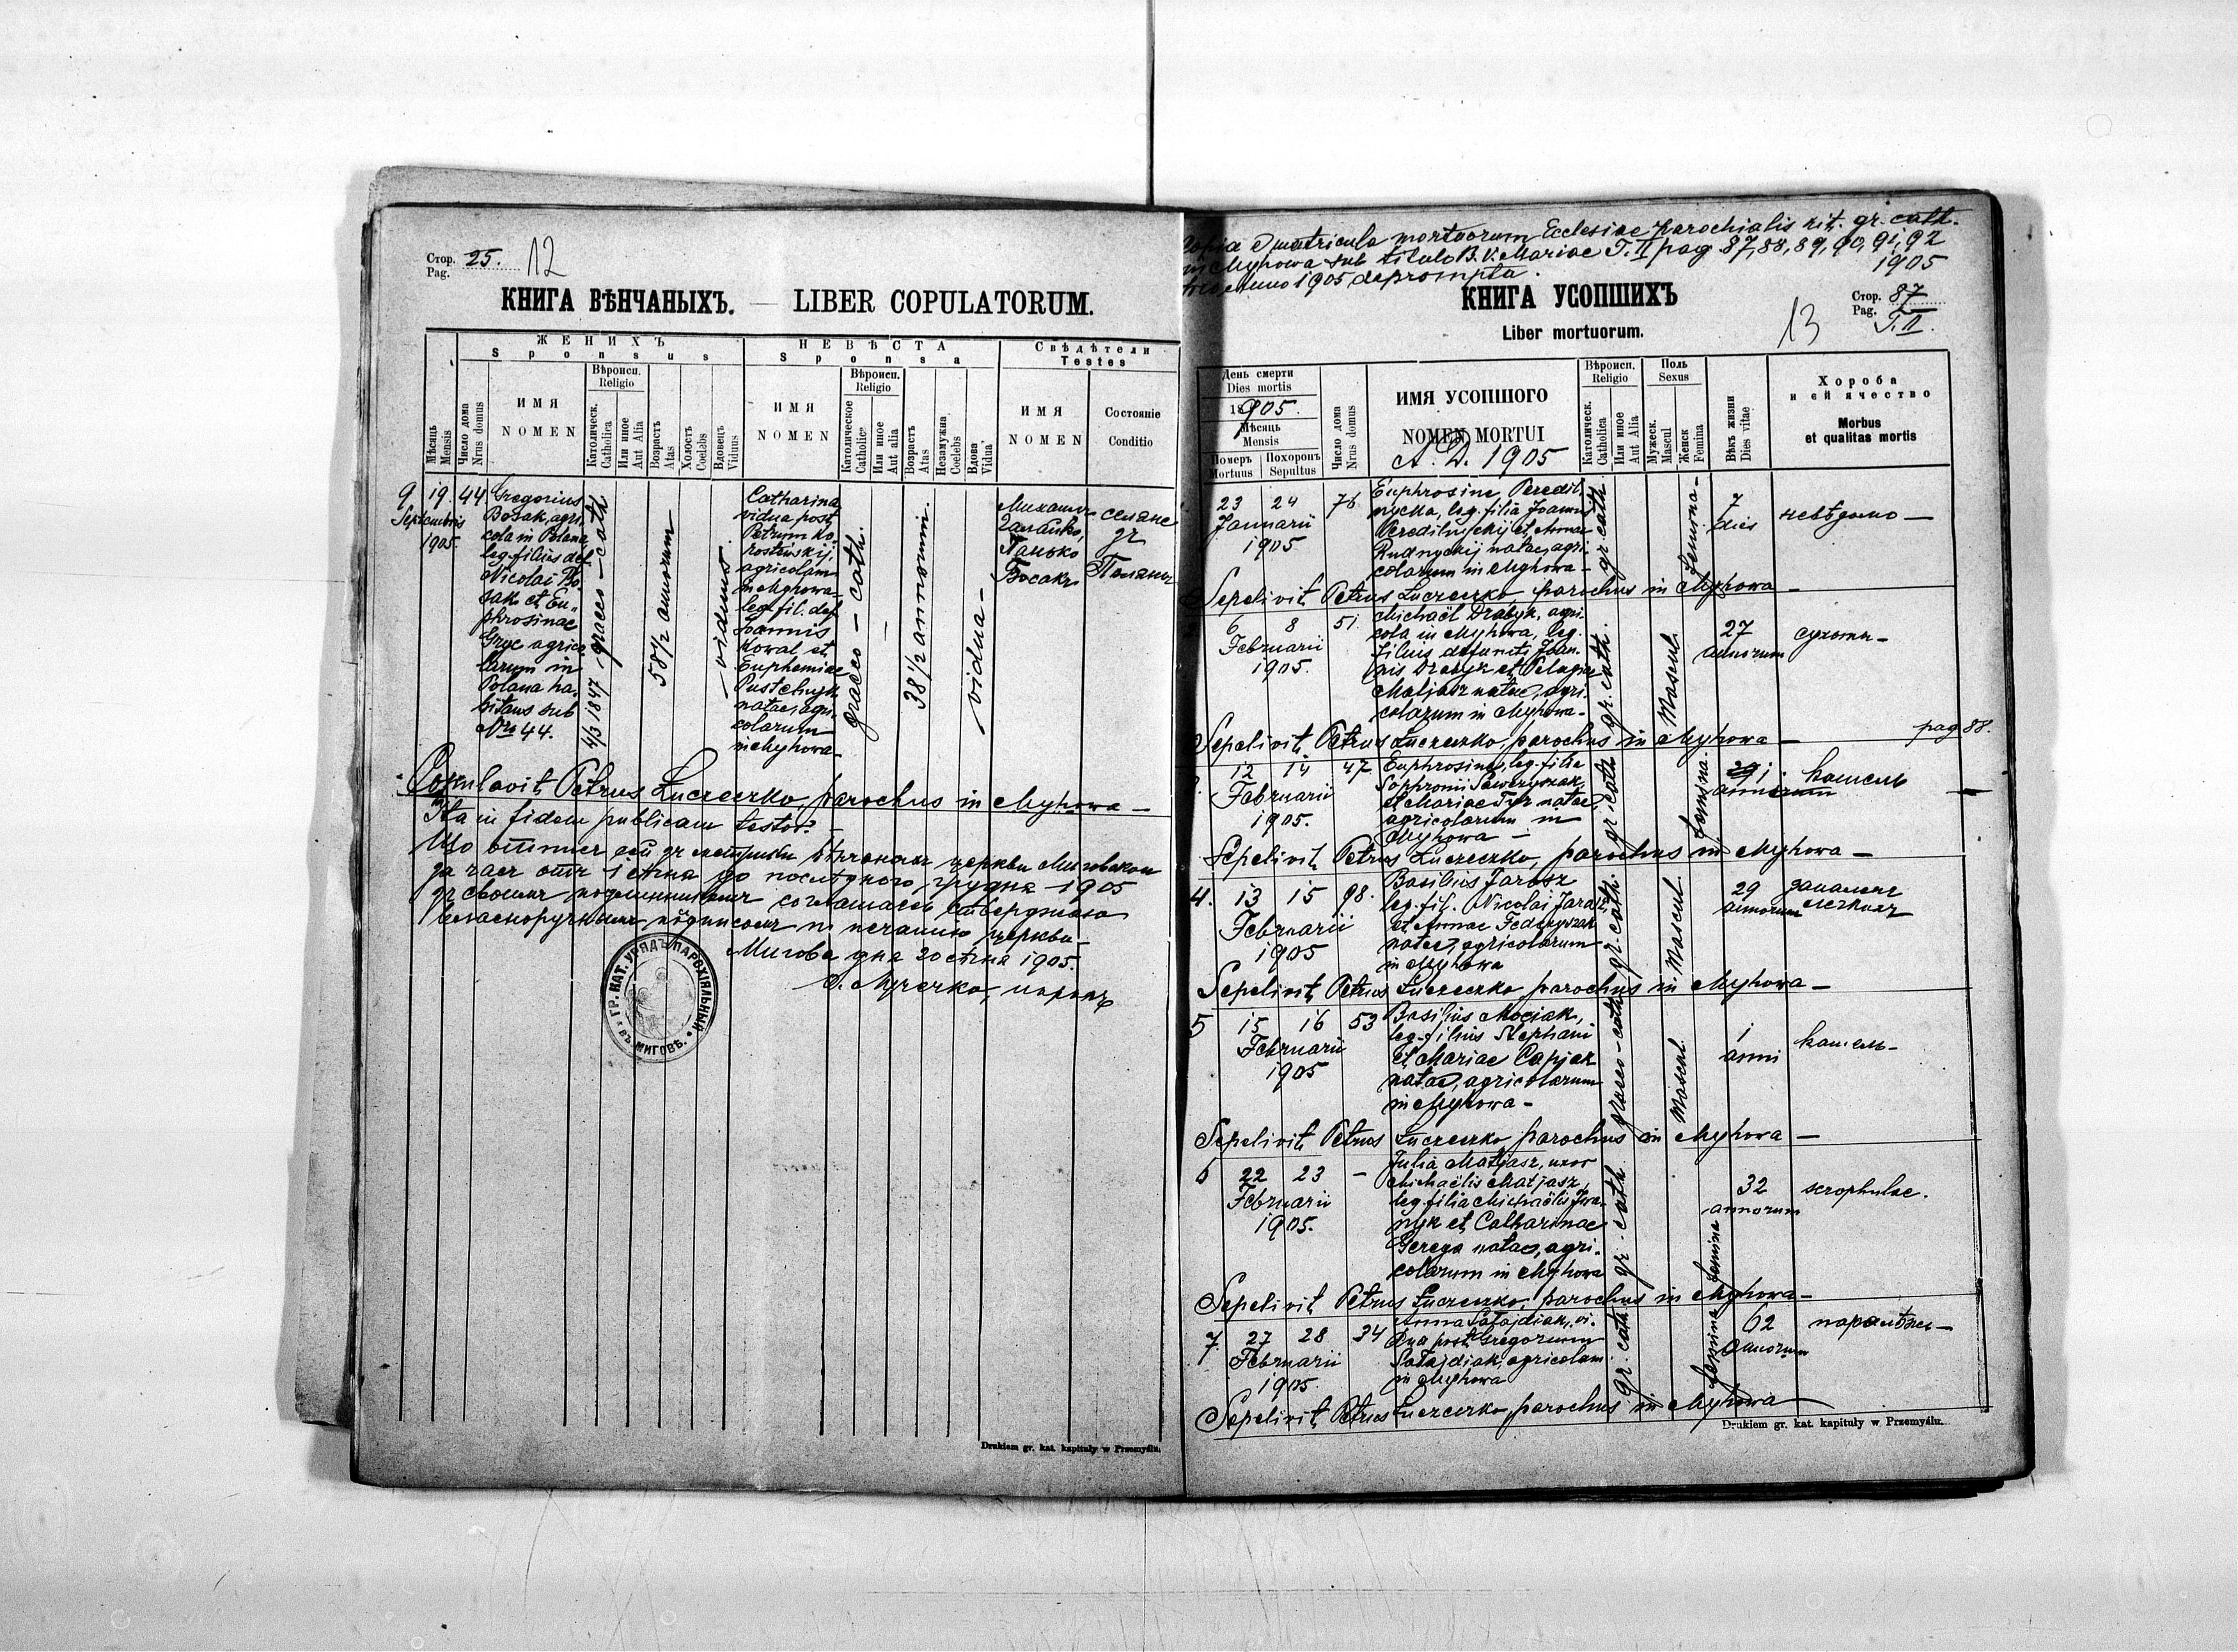 Стор. Pag. 25. 12
КНИГА ВѢНЧАНЫХЪ. — LIBER COPULATORUM.
ЖЕНИХЪ
Sponsus
НЕВѢСТА
Sponsa
Свѣдѣтели
Testes
Мѣсяць Mensis
Число дома Nrus domus
ИМЯ
NOMEN
Вѣроисп.
Religio
Католическ. Catholica
Или иное Aut Alia
Возрастъ Atas
Холостъ Coelebs
Вдовецъ Viduus
ИМЯ
NOMEN
Вѣроисп.
Religio
Католическое Catholica
Или иное Aut alia
Возрастъ Atas
Незамужна Coelebs
Вдова Vidua
ИМЯ
NOMEN
Состояніе
Conditio
9 19. 44.
Septembris
1905.
Gregorius
Bosak, agri-
cola in Polana
leg. filius def.
Nicolai Bo-
sak et Eu-
phrosinae
Gryc agrico-
larum in
Polana ha-
bitans sub
Nro 44.
4/3 1847, graeco-cath
58 1/2 annorum
— viduus
Catharina
vidua post
Petrum Ko-
rostenskij
agricolam
in Myhowa
leg. fil. def.
Joannis
Kowal et
Euphemiae
Pustelnyk
natae, agri-
colarum
in Myhowa
graeco — cath.
38 1/2 annorum.
vidua —
Михаил
Галайко,
Панько
Босакъ
селяне
зъ
Поляны
Copulavit Petrus Łuczeczko, parochus in Myhowa —
Ita in fidem publicam testor. —
Що витяг сей зъ метрики вѣнчаныхъ церкви Миговской
за часъ отъ 1 сѣчня до послѣдного грудня 1905
зъ своимъ подлинникомъ согласный ствердж
власноручнымъ пôдписомъ и печатію церкви
Мигова дня 20 сѣчня 1905.
П. Лучечко, парохъ
ГР. КАТ. УРЯДЪ ПАРОХІЯЛЬНЫЙ
въ МИГОВѢ.
Drukiem gr. kat. kapituły w Przemyślu.
Copia e matricula mortuorum Ecclesiae parochialis rit. gr. cath.
in Myhowa sub titulo B. V. Mariae T. II pag 87, 88, 89, 90, 91, 92
anno 1905 deprompta. 1905
КНИГА УСОПШИХЪ
Liber mortuorum.
13
Стор. Pag. 87
T. II.
День смерти
Dies mortis
1905.
Мѣсяць
Mensis
Померъ Mortuus
Похоронъ Sepultus
Число дома Nrus domus
ИМЯ УСОПШОГО
NOMEN MORTUI
A. D. 1905
Вѣроисп.
Religio
Католическ. Catholica
Или иное Aut Alia
Полъ
Sexus
Мужеск. Mascul
Женск Femina
Вѣкъ жизни Dies vitae
Хороба
и ей ячество
Morbus
et qualitas mortis
23 24 76
Januarii
1905
Euphrosine Peredil-
nycka, leg. filia Joannis
Peredilnyckij et Annae
Rudnyckij natae, agri-
colarum in Myhowa —
gr. cath
Femina —
7
dies
невѣдомо —
Sepelivit Petrus Łuczeczko, parochus in Myhowa —
6 8 51.
Februarii
1905.
Michaël Drabyk, agri-
cola in Myhowa, leg.
filius defuncti Joan-
nis Drabyk et Pelagiae
Matjasz natae, agri-
colarum in Myhowa —
gr. cath.
Mascul.
27
annorum
сухоты —
Sepelivit Petrus Łuczeczko, parochus in Myhowa —
pag 88.
12 14 47
Februarii
1905.
Euphrosine, leg. filia
Sophronii Saweryszak
et Mariae Tyr natae,
agricolarum in
Myhowa —
gr. cath
Femina
1
кашель
Sepelivit Petrus Łuczeczko, parochus in Myhowa —
4. 13 15 98.
Februarii
1905
Basilius Jarosz
leg. fil. Nicolai Jarosz
et Annae Fedoryszak
natae, agricolarum
in Myhowa
gr. cath.
Mascul.
29
annorum
запалене
легкихъ
Sepelivit Petrus Łuczeczko, parochus in Myhowa —
5 15 16 53
Februarii
1905
Basilius Mocjak,
leg. filius Stephani
et Mariae Capjak
natae, agricolarum
in Myhowa —
graeco-cath
Mascul.
1
anni
кашель —
Sepelivit Petrus Łuczeczko parochus in Myhowa —
6 22 23 —
Februarii
1905.
Julia Matjasz, uxor
Michaëlis Matjasz,
leg. filia Michaëlis Iwa-
nyk et Catharinae
Gerega natae, agri-
colarum in Myhowa
gr. cath
Femina
32
annorum
scrophulae.
Sepelivit Petrus Łuczeczko, parochus in Myhowa —
7. 27 28 34
Februarii
1905.
Anna Sałajdiak, vi-
dua post Gregorium
Sałajdiak, agricolam
in Myhowa
gr. cath.
Femina
62
annorum
паралѣжъ —
Sepelivit Petrus Łuczeczko, parochus in Myhowa
Drukiem gr. kat. kapituły w Przemyślu.